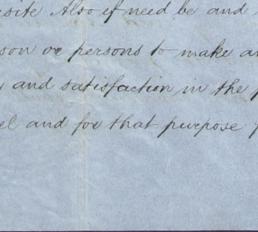 Also if need be and
son or persons to make
and satisfaction in the
and for that purpose